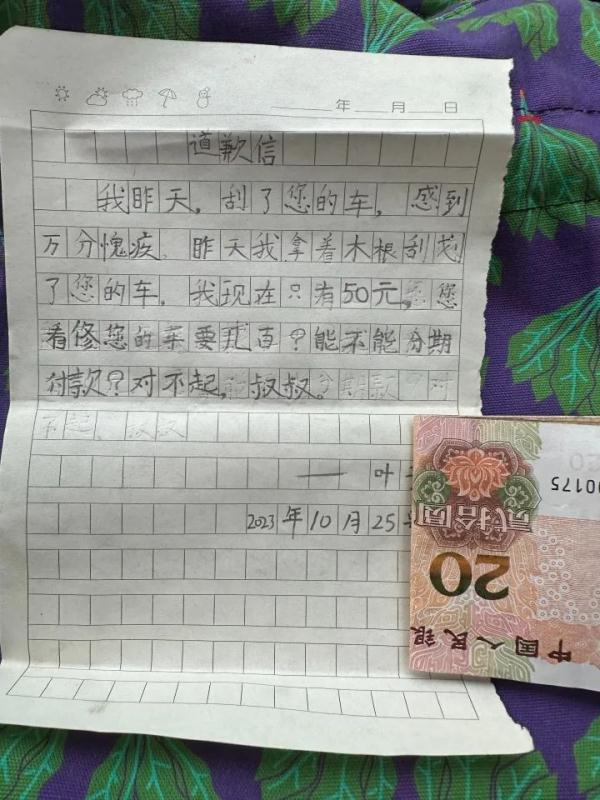 年 月 日
道歉信
我昨天，刮了您的车，感到
万分愧疚 昨天我拿着木根刮戈
了您的车，我现在只有50元。您
看修您的车要几百？能不能分期
付款？对不起，叔叔。
不起，叔叔
— 叶
2023年10月25
00175
贰拾圆
20
中国人民银